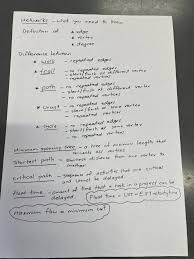 Networks - what you need to know
Definition of * edge
* vertex
* degree
Difference between:
* walk - no repeated edges
* trail - no repeated edges
- start/finish at different vertex
- repeated vertex
* path - no repeated edges
- start/finish at different vertex
- no repeated vertices
* circuit - no repeated edges
- start/finish at same vertex
- repeated vertices
* cycle - no repeated edges
- start/finish at same vertex
- no repeated vertices
Minimum spanning tree - a tree of minimum length that connects all vertices
Shortest path - shortest distance from one vertex to another
Critical path - sequence of activities that are critical and cannot be delayed
Float time - amount of time that a task in a project can be delayed. Float time = LST - EST
Maximum flow = minimum cut